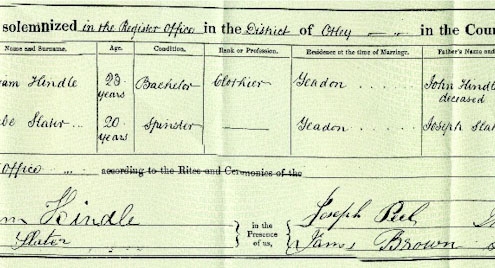 solemnized in the Register Office in the District of Otley in the Coun
Name and Surname. Age. Condition. Rank or Profession. Residence at the time of Marriage. Father's Name and
iam Hindle 23 years Bachelor Clothier Yeadon John Hindl deceased
be Slater 20 years Spinster Yeadon Joseph Slat
Office according to the Rites and Ceremonies of the
m Hindle in the Presence of us, Joseph Peel
Slater James Brown